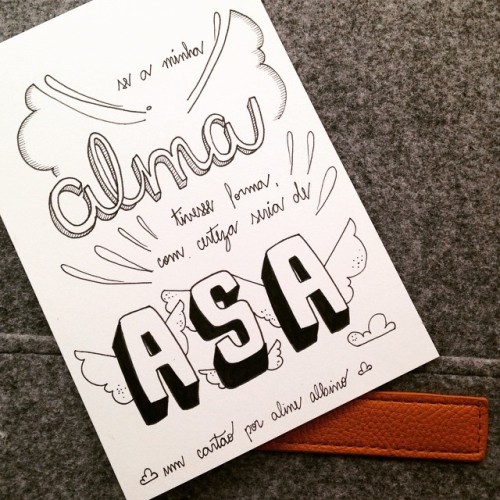 se a minha
alma
tivesse forma,
com certeza seria de
ASA
um cartão por aline albino